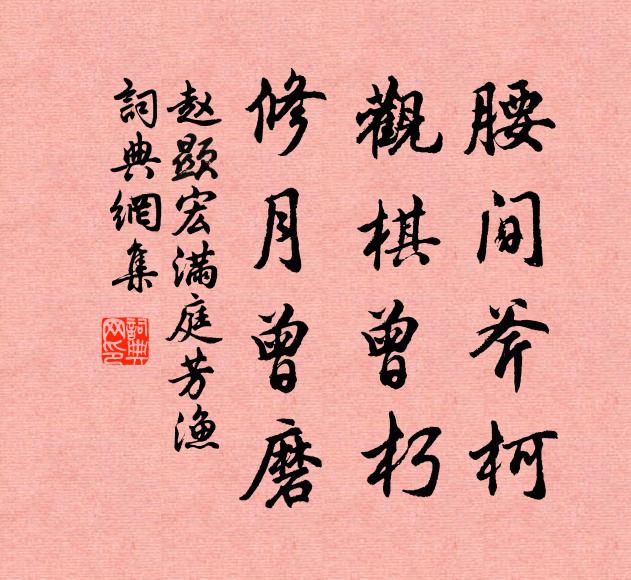 腰间斧柯
觀棋曾朽
修月曾磨
赵顯宏满庭芳漁
詞典網集
詞典
网印